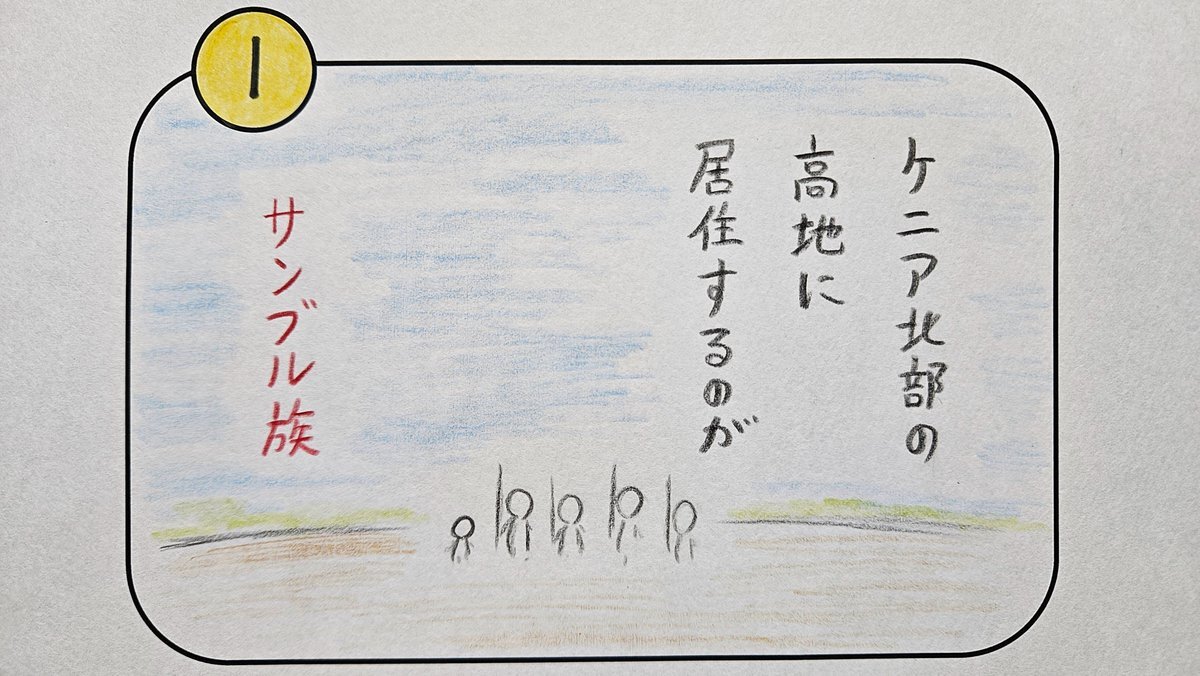 1
ケニア北部の
高地に
居住するのが
サンブル族